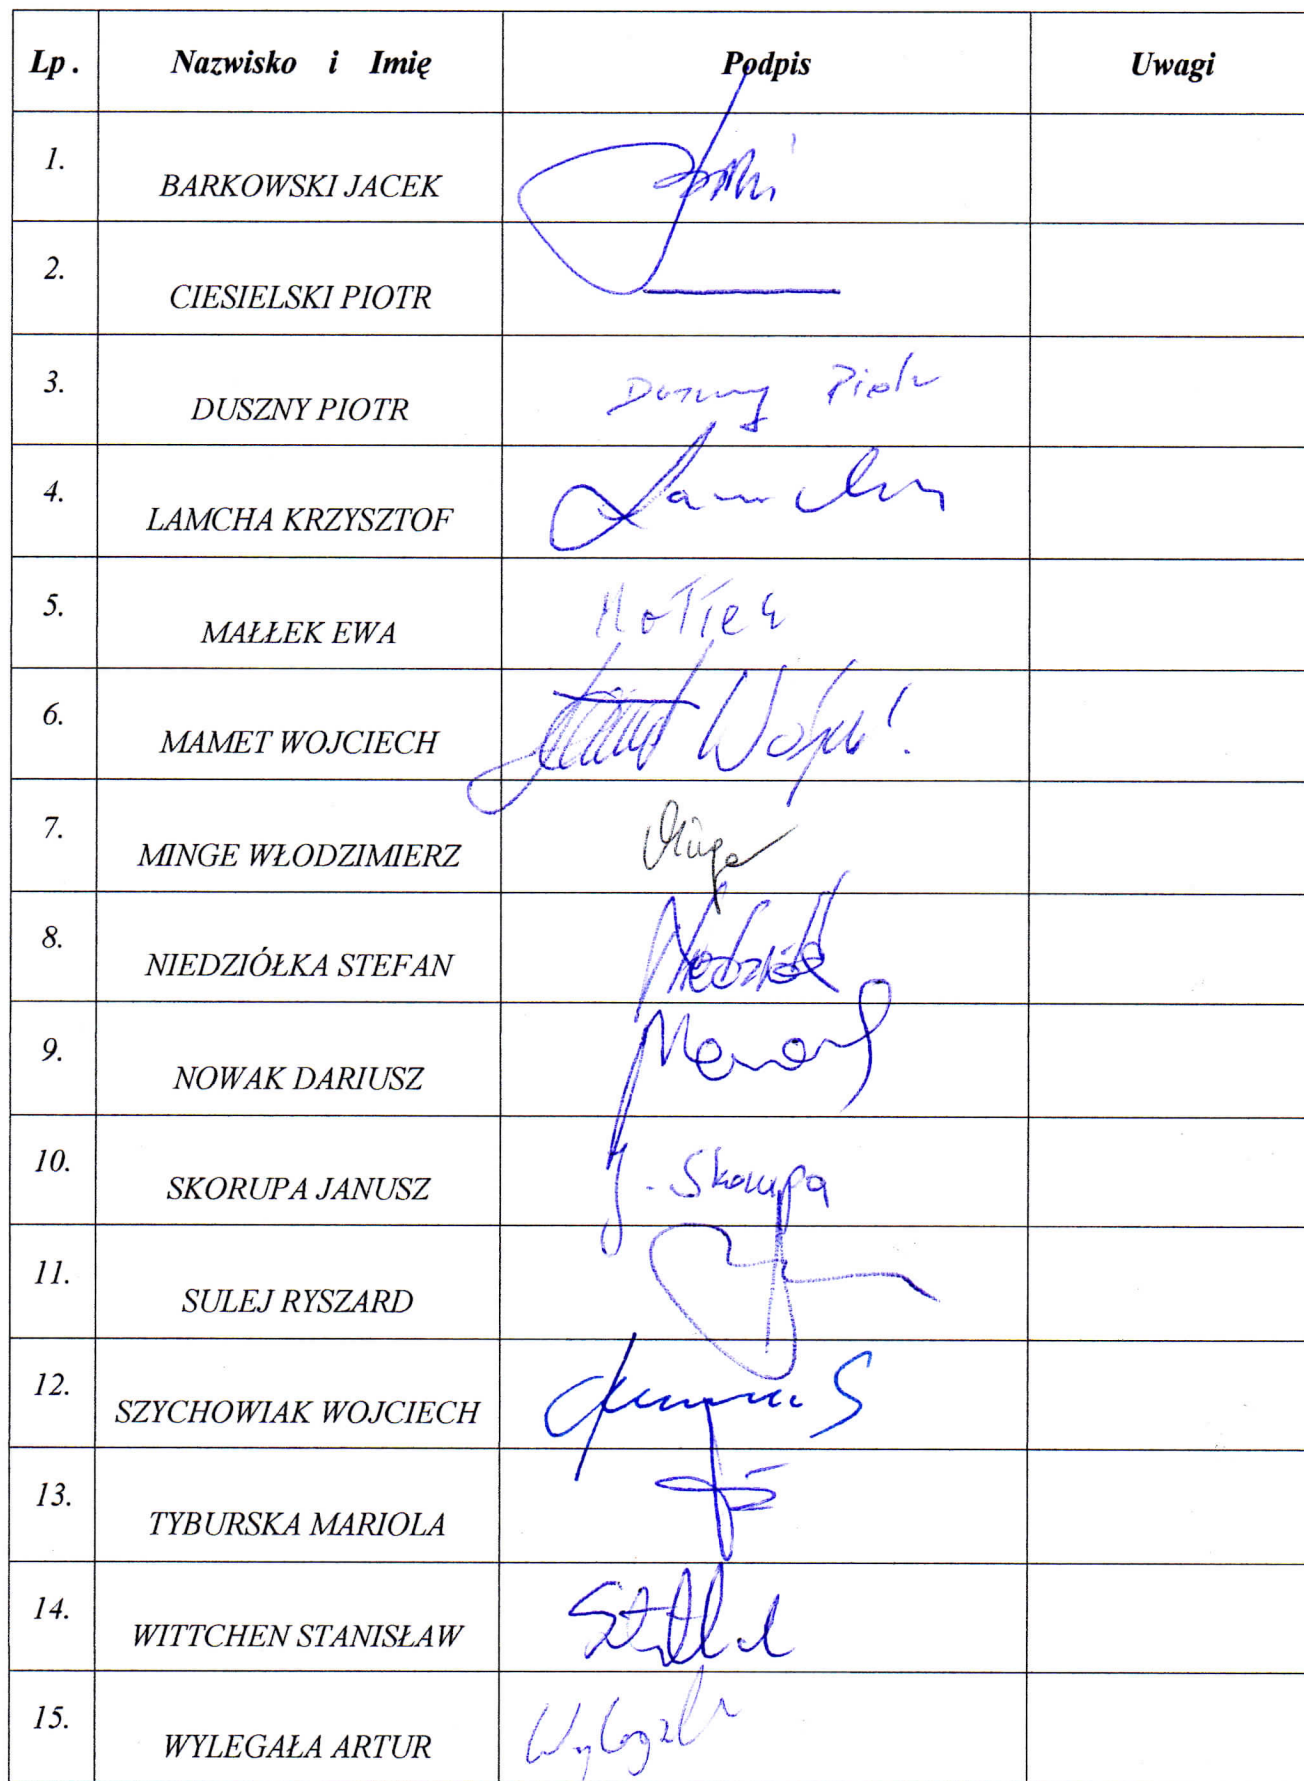 Lp. Nazwisko i Imię Podpis Uwagi
1. BARKOWSKI JACEK
2. CIESIELSKI PIOTR
3. DUSZNY PIOTR Duszny Piotr
4. LAMCHA KRZYSZTOF Lamcha
5. MAŁŁEK EWA Małłek
6. MAMET WOJCIECH
7. MINGE WŁODZIMIERZ Minge
8. NIEDZIÓŁKA STEFAN
9. NOWAK DARIUSZ
10. SKORUPA JANUSZ J. Skorupa
11. SULEJ RYSZARD
12. SZYCHOWIAK WOJCIECH
13. TYBURSKA MARIOLA
14. WITTCHEN STANISŁAW
15. WYLEGAŁA ARTUR